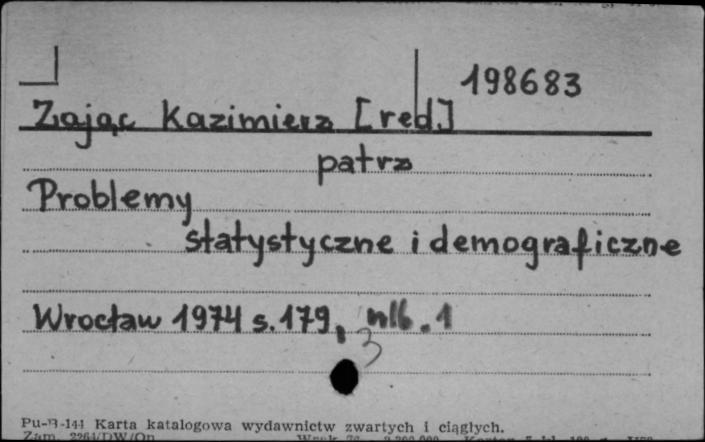 198683
Zając Kazimierz [red.]
patrz
Problemy
statystyczne i demograficzne
Wrocław 1974 s. 179, nlb. 1
3
Pu-B-144 Karta katalogowa wydawnictw zwartych i ciągłych.
Zam. 2264/DW/On